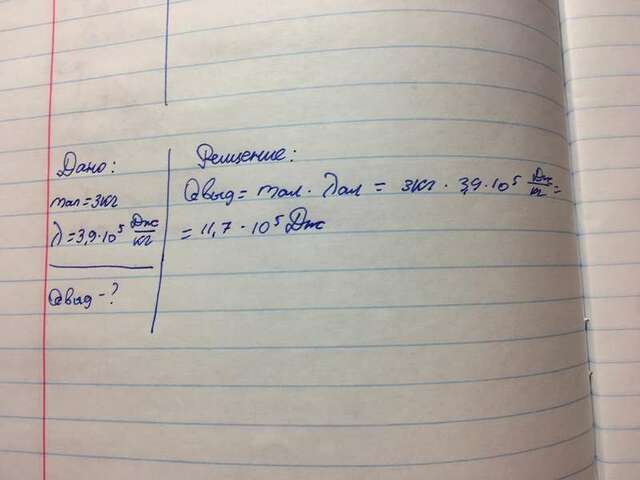 Дано:
mал = 3кг
λ = 3,9·10⁵ Дж/кг
Qвыд - ?
Решение:
Qвыд = mал · λал = 3кг · 3,9·10⁵ Дж/кг =
= 11,7 · 10⁵ Дж